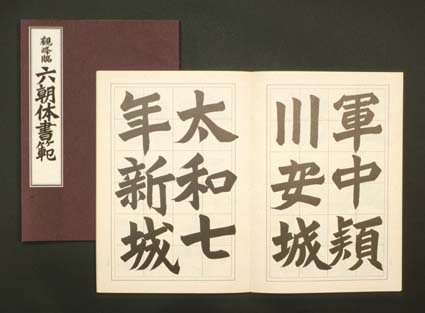 観峰臨
六朝体書範
軍中頴
川安城
太和七
年新城